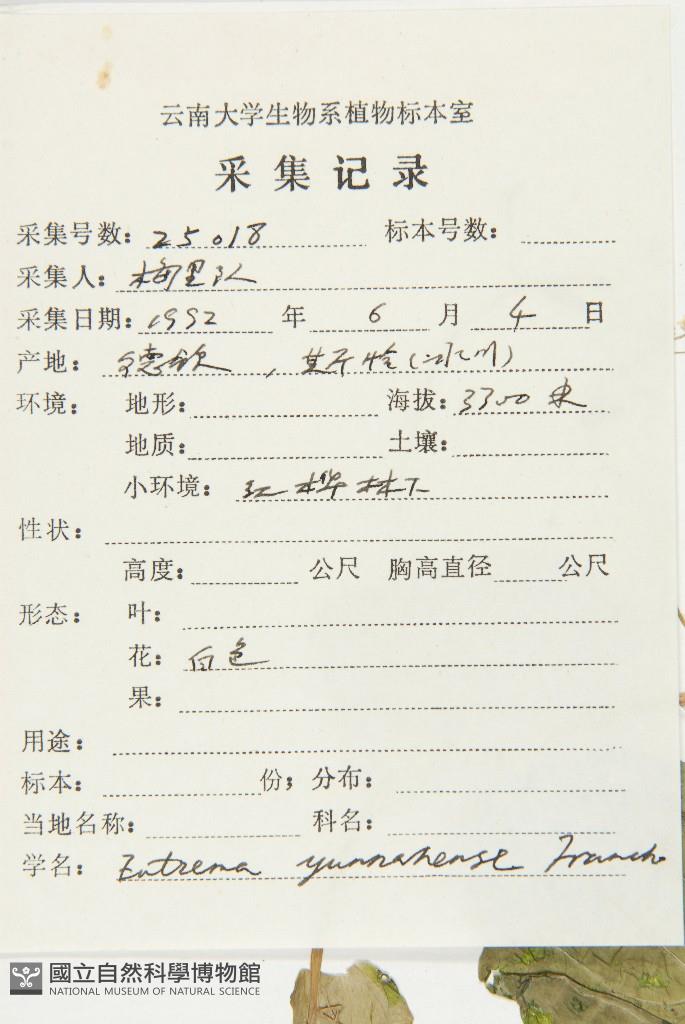 云南大学生物系植物标本室
采集记录
采集号数: 25018 标本号数:
采集人: 梅里队
采集日期: 1992 年 6 月 4 日
产地: 德钦, (冰川)
环境: 地形: 海拔: 3300 米
地质: 土壤:
小环境: 红桦林下
性状:
高度: 公尺 胸高直径 公尺
形态: 叶:
花: 白色
果:
用途:
标本: 份; 分布:
当地名称: 科名:
学名: Eutrema yunnanense Franch.
國立自然科學博物館
NATIONAL MUSEUM OF NATURAL SCIENCE